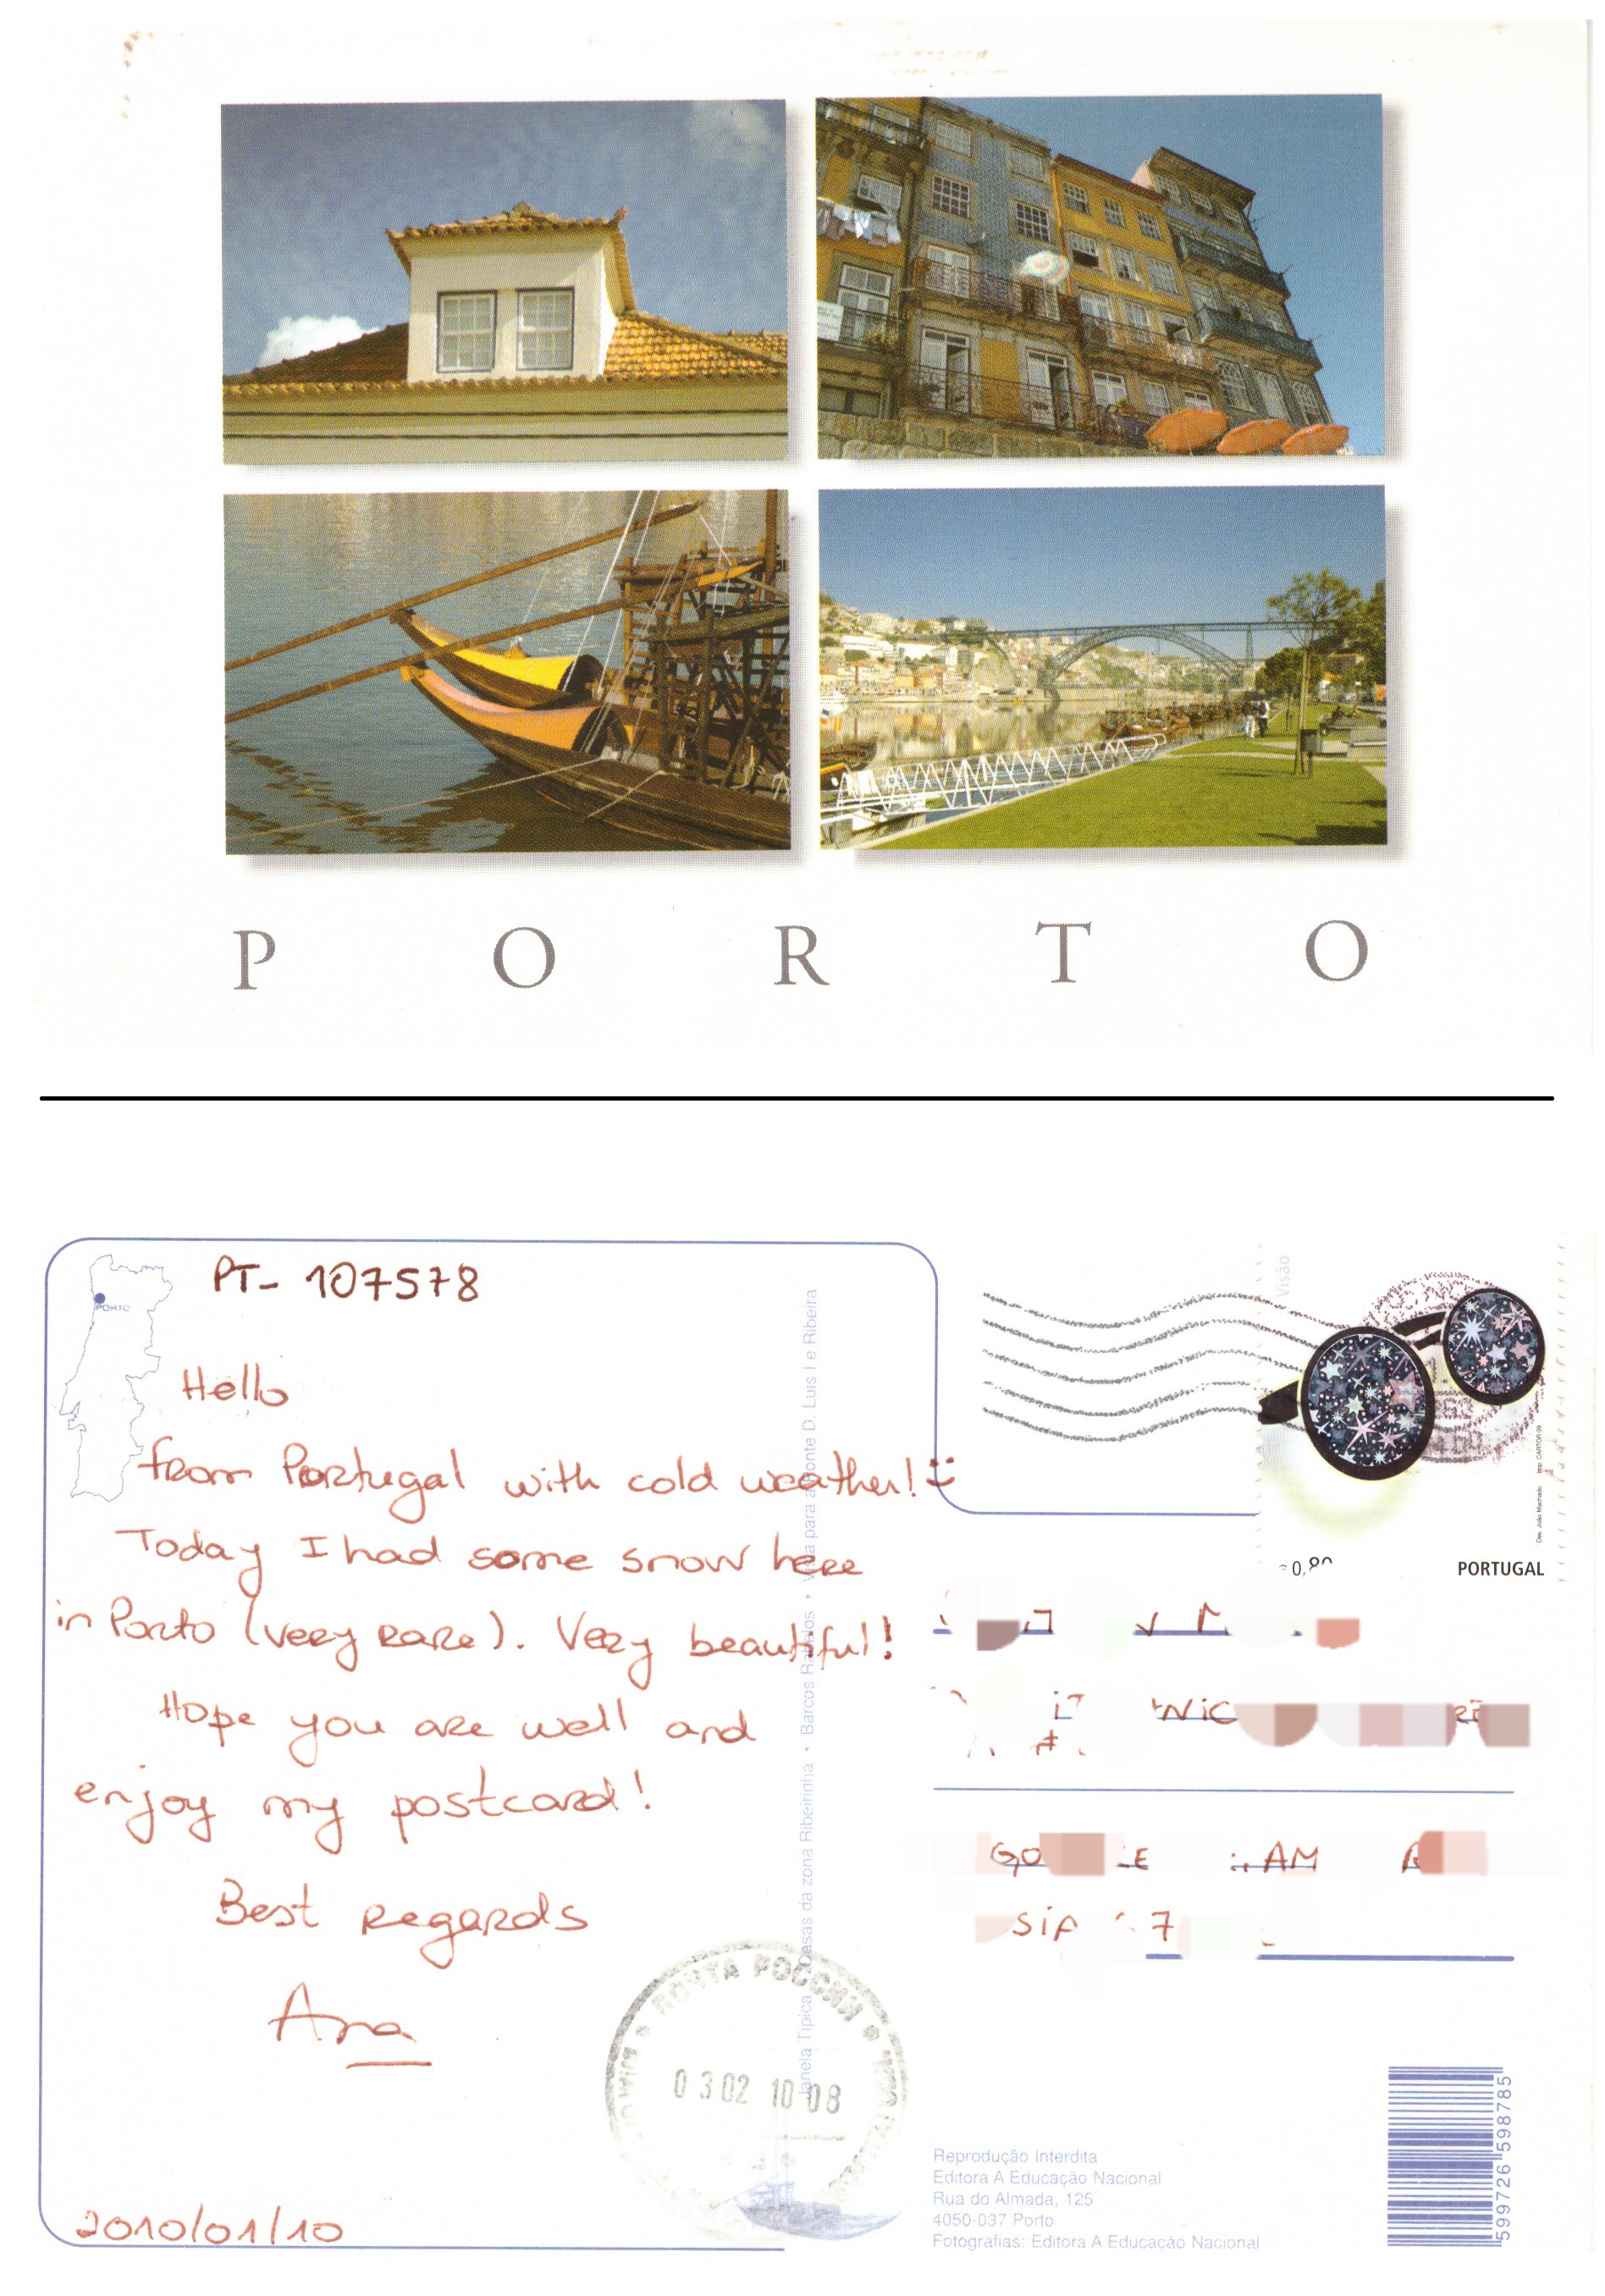 P O R T O
PT- 107578
PORTO
Hello
from Portugal with cold weather! :)
Today I had some snow here
in Porto (very rare). Very beautiful!
Hope you are well and
enjoy my postcard!
Best regards
Ana
2010/01/10
Janela Típica • Casas da zona Ribeirinha • Barcos Rabelos • Vista para a Ponte D. Luis I e Ribeira
Visão
Des. João Machado Imp. CARTOR 09
PORTUGAL
ПОЧТА РОССИИ
03 02 10 08
Reprodução Interdita
Editora A Educação Nacional
Rua do Almada, 125
4050-037 Porto
Fotografias: Editora A Educação Nacional
5 599726 598785